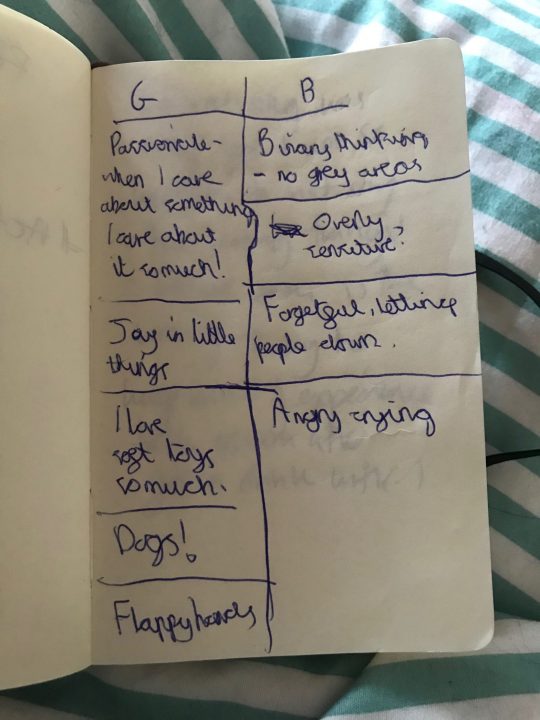 G
Passionate-
when I care
about something
I care about
it so much!
Joy in little
things
I love
soft toys
so much.
Dogs!
Flappy hands
B
Binary thinking
- no grey areas
Overly
sensitive?
Forgetful, letting
people down.
Angry crying